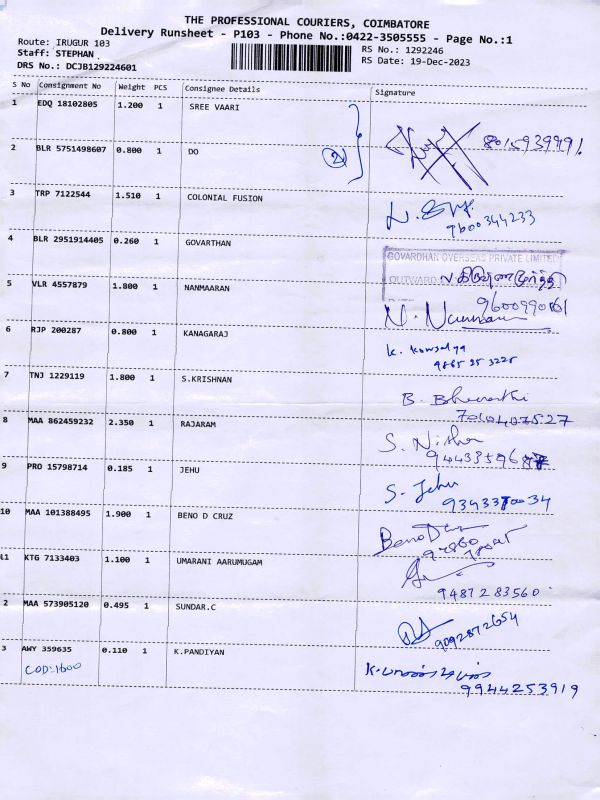 THE PROFESSIONAL COURIERS, COIMBATORE
Delivery Runsheet - P103 - Phone No.:0422-3505555 - Page No.:1
Route: IRUGUR 103
Staff: STEPHAN
DRS No.: DCJB129224601
RS No.: 1292246
RS Date: 19-Dec-2023
S No Consignment No Weight PCS Consignee Details Signature
1 EDQ 18102805 1.200 1 SREE VAARI
2 BLR 5751498607 0.800 1 DO (2) 8015939991
3 TRP 7122544 1.510 1 COLONIAL FUSION
9600344233
4 BLR 2951914405 0.260 1 GOVARTHAN
GOVARDHAN OVERSEAS PRIVATE LIMITED
OUTWARD
5 VLR 4557879 1.800 1 NANMAARAN
N.
6 RJP 200287 0.800 1 KANAGARAJ
K. Kowsalya
9865 35 3225
7 TNJ 1229119 1.800 1 S.KRISHNAN
B. Bharathi
8 MAA 862459232 2.350 1 RAJARAM
S. Nisha
9 PRO 15798714 0.185 1 JEHU
S. Jehu
10 MAA 101388495 1.900 1 BENO D CRUZ
11 KTG 7133403 1.100 1 UMARANI AARUMUGAM
9487283560
2 MAA 573905120 0.495 1 SUNDAR.C
9092872654
3 AWY 359635 0.110 1 K.PANDIYAN
COD:1600
9944253919